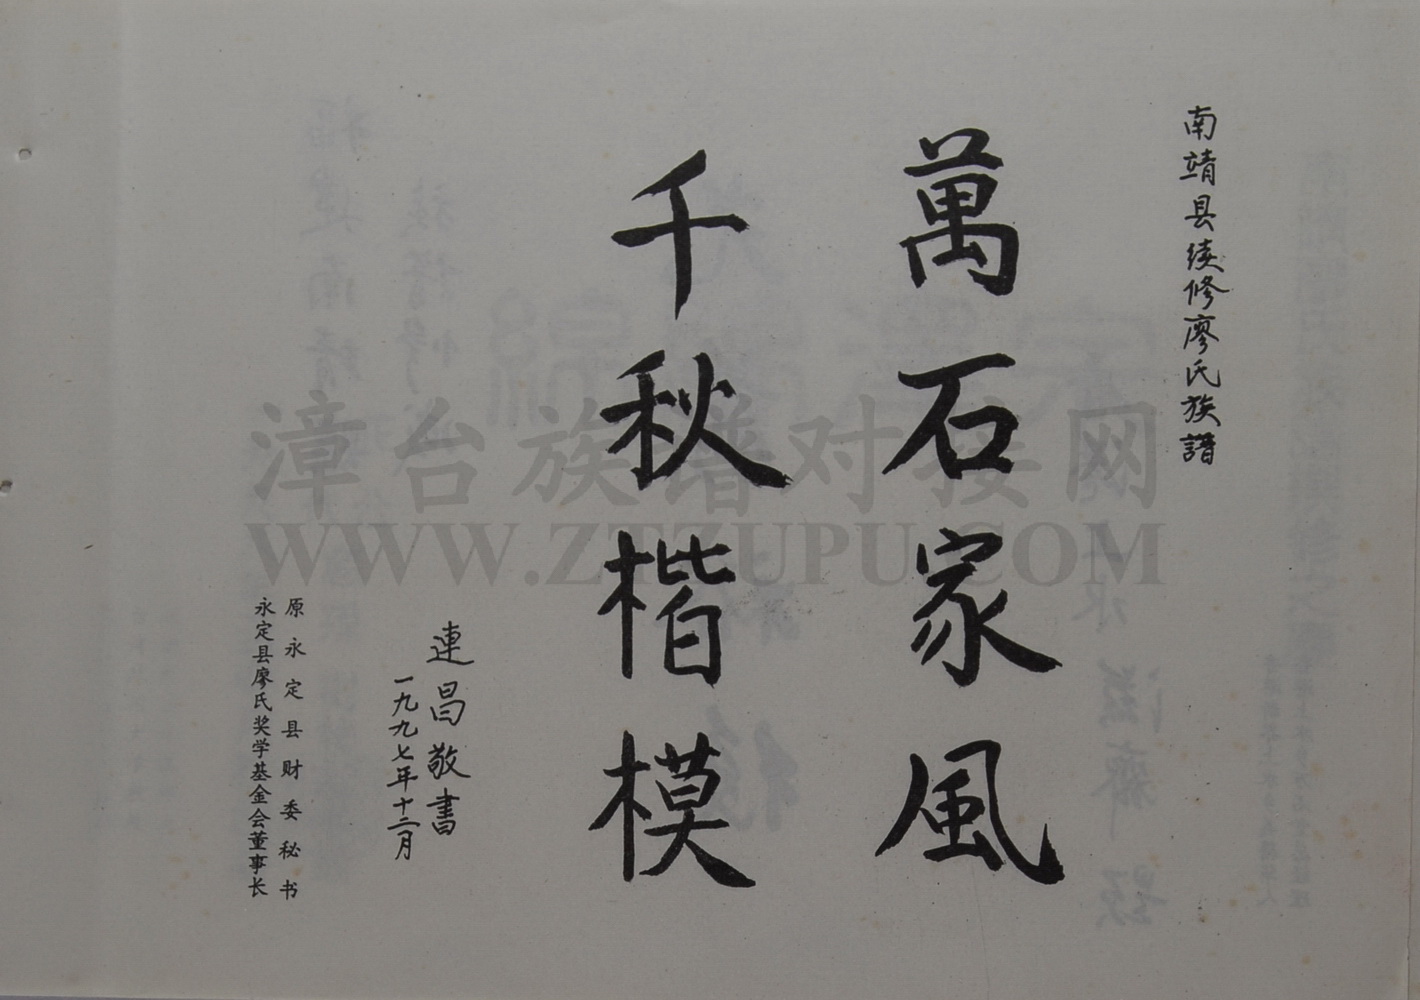 南靖县续修廖氏族譜
萬石家風
千秋楷模
連昌敬書
一九九七年十二月
原永定县财委秘书
永定县廖氏奖学基金会董事长
漳台族谱对接网
WWW.ZTZUPU.COM